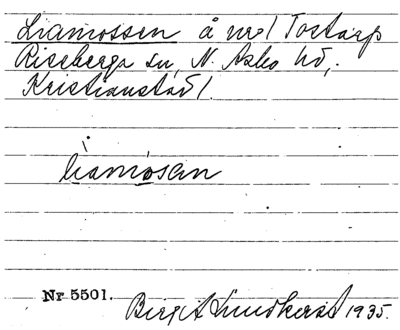 Liamossen å nr 1 Tostarp
Riseberga sn, N. Åsbo hd,
Kristianstad l.
liamosan
Nr 5501.
Birgit Lundkvist 1935.